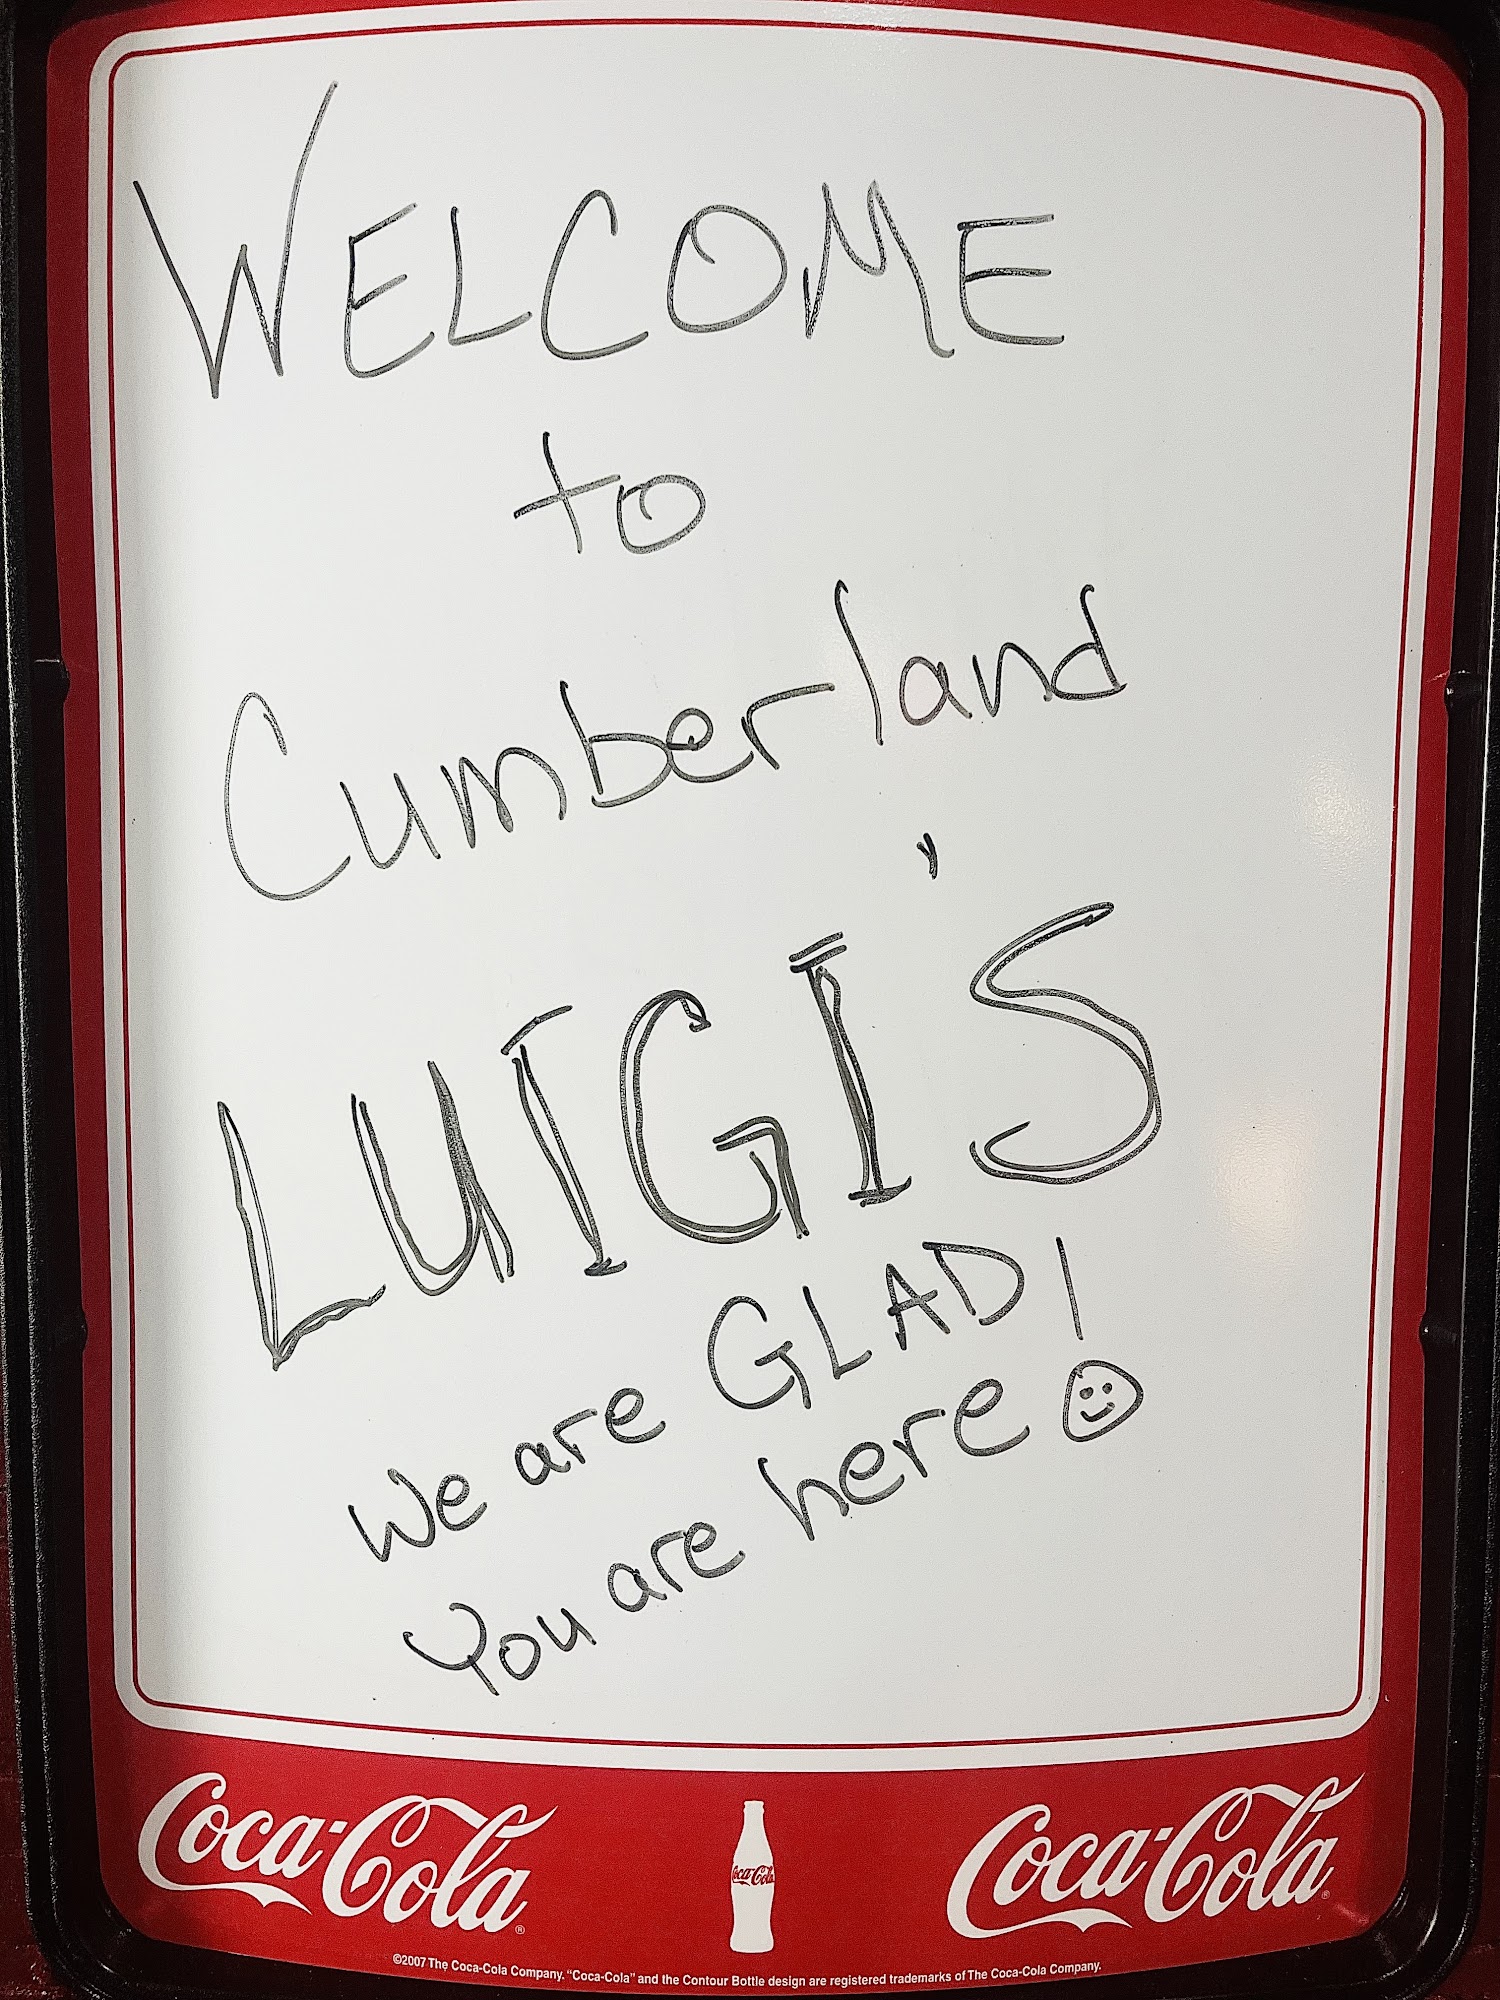 WELCOME
to
Cumberland
LUIGI'S
We are GLAD!
You are here
Coca-Cola® Coca-Cola Coca-Cola®
©2007 The Coca-Cola Company. "Coca-Cola" and the Contour Bottle design are registered trademarks of The Coca-Cola Company.